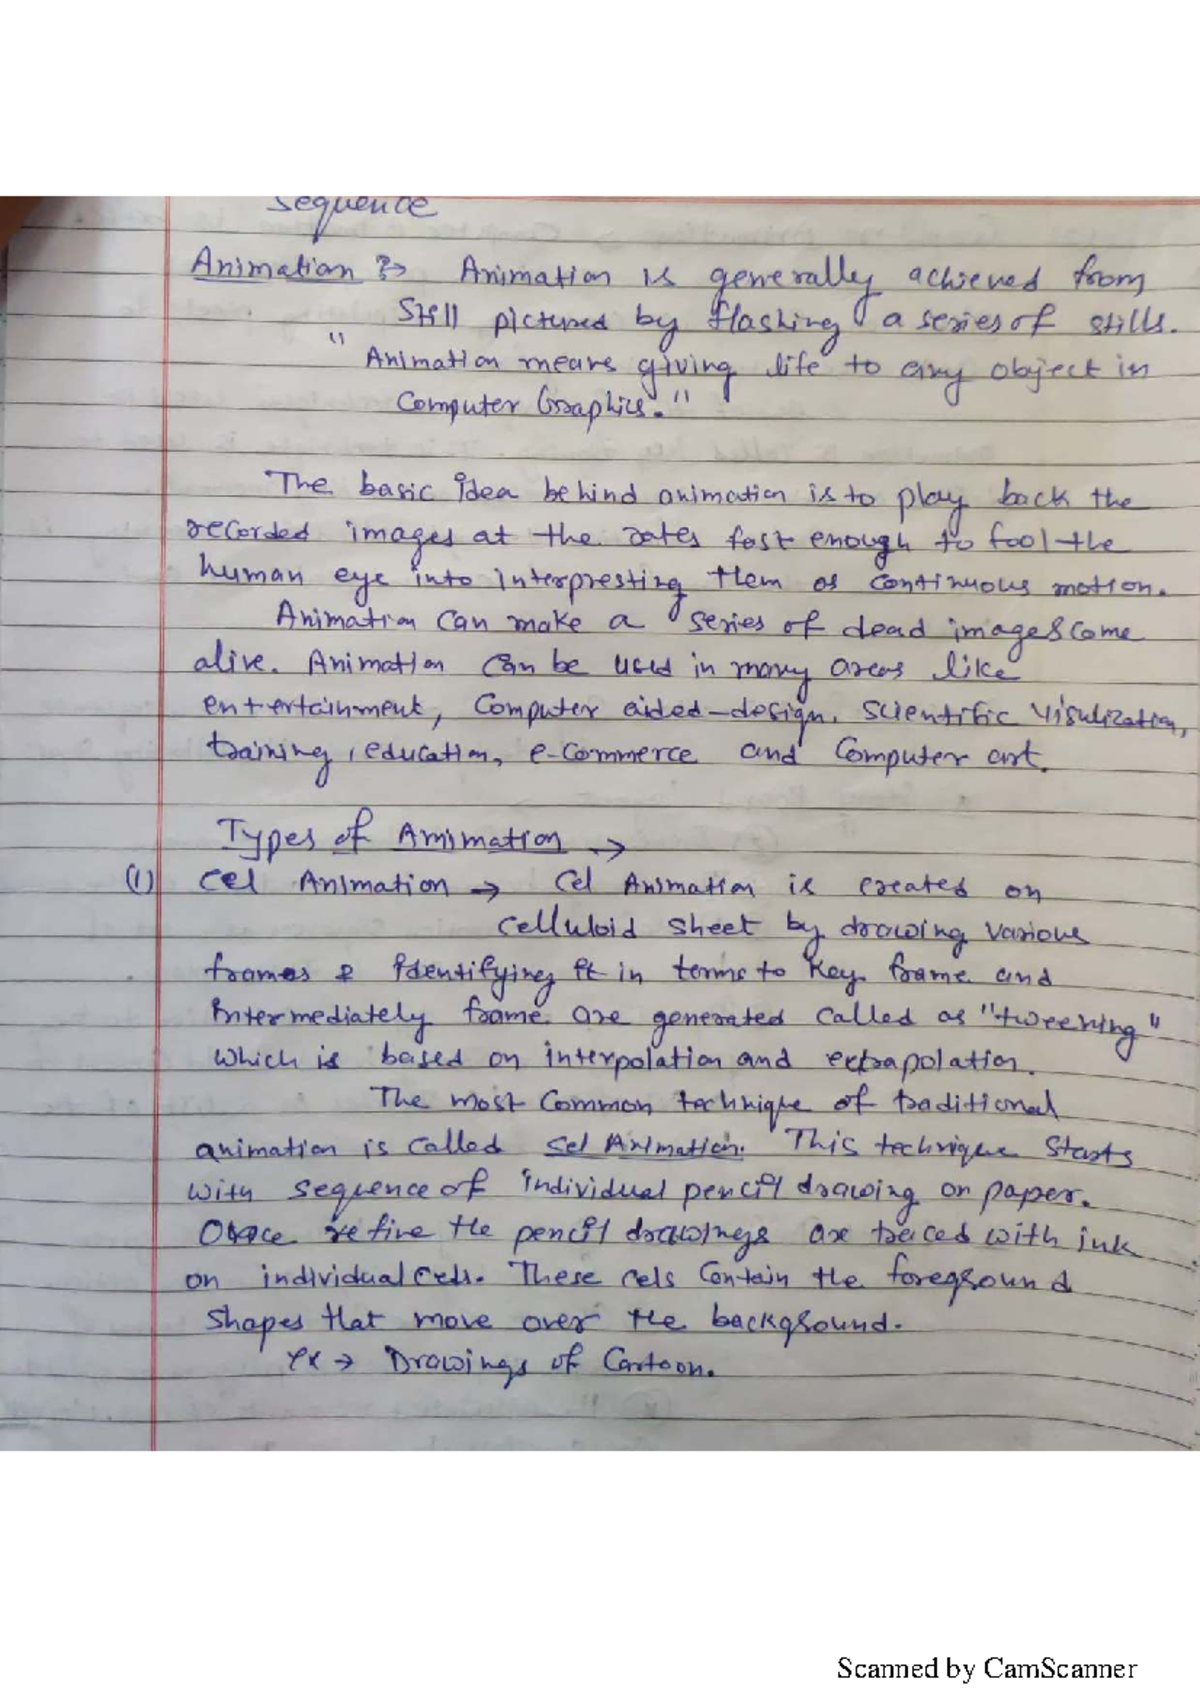 Sequence
Animation :-> Animation is generally achieved from
Still pictured by flashing a series of stills.
"Animation means giving life to any object in
Computer Graphics."
The basic idea behind animation is to play back the
recorded images at the rates fast enough to fool the
human eye into interpresting them as continuous motion.
Animation can make a series of dead images come
alive. Animation can be used in many areas like
entertainment, Computer aided-design, Scientific Visulization,
training, education, e-Commerce and Computer art.
Types of Animation →
(1) Cel Animation → Cel Animation is created on
Celluloid sheet by drawing various
frames & identifying it in terms to key frame and
Intermediately frame are generated called as "tweening"
which is based on interpolation and extrapolation.
The most common technique of traditional
animation is called Sel Animation. This technique starts
with sequence of individual pencil drawing on paper.
refine the pencil drawings are traced with ink
on individual cells. These cels contain the foreground
shapes that move over the background.
Ex → Drawings of Cartoon.
Scanned by CamScanner